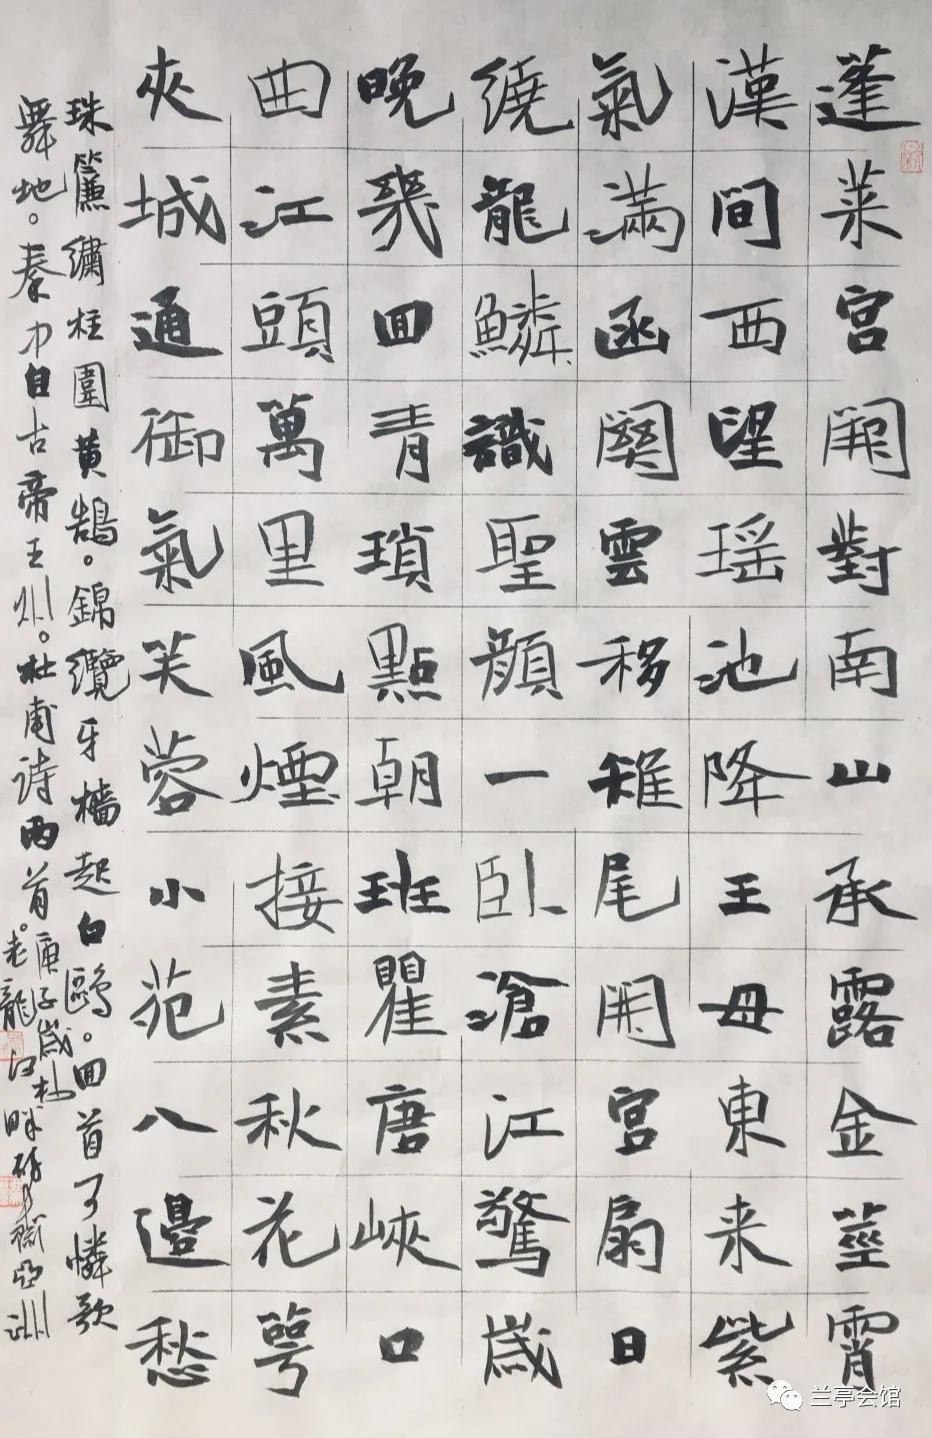 蓬萊宮闕對南山承露金莖霄
漢間西望瑶池降王母東来紫
氣滿函關雲移雉尾開宮扇日
繞龍鱗識聖顔一卧滄江驚歲
晚幾回青瑣點朝班瞿唐峽口
曲江頭萬里風煙接素秋花萼
夾城通御氣芙蓉小苑入邊愁
珠簾繡柱圍黄鵠。錦纜牙檣起白鷗。回首可憐歌
舞地。秦中自古帝王州。杜甫诗两首。庚子歲
老龍口畔亞洲
兰亭会馆